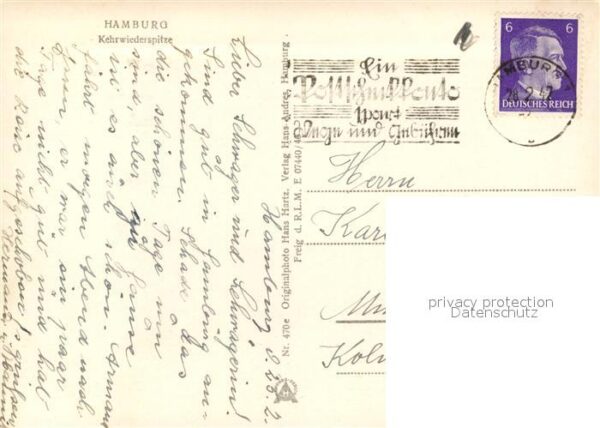 HAMBURG
Kehrwiederspitze
Hamburg d. 28. 2.
Liebe Schwager und Schwägerin!
Sind gut in Hamburg an-
gekommen. Schade das
die schönen Tage um
sind, aber zu Hause
ist es auch schön. Hermann
fährt morgen Abend nach
denn er war ein paar
Tage nicht gut und hat
die Reise aufgeschoben. Es grüßen
Hermann u.
Nr. 470e Originalphoto Hans Hartz, Verlag Hans Andres, Hamburg.
Freig d. R.L.M. E 07440/
Ein
Postscheckkonto
spart
Wege und Gebühren
HAMBURG
28.2.42
6 6
DEUTSCHES REICH
Herrn
Kar
Mü
Köln
privacy protection
Datenschutz